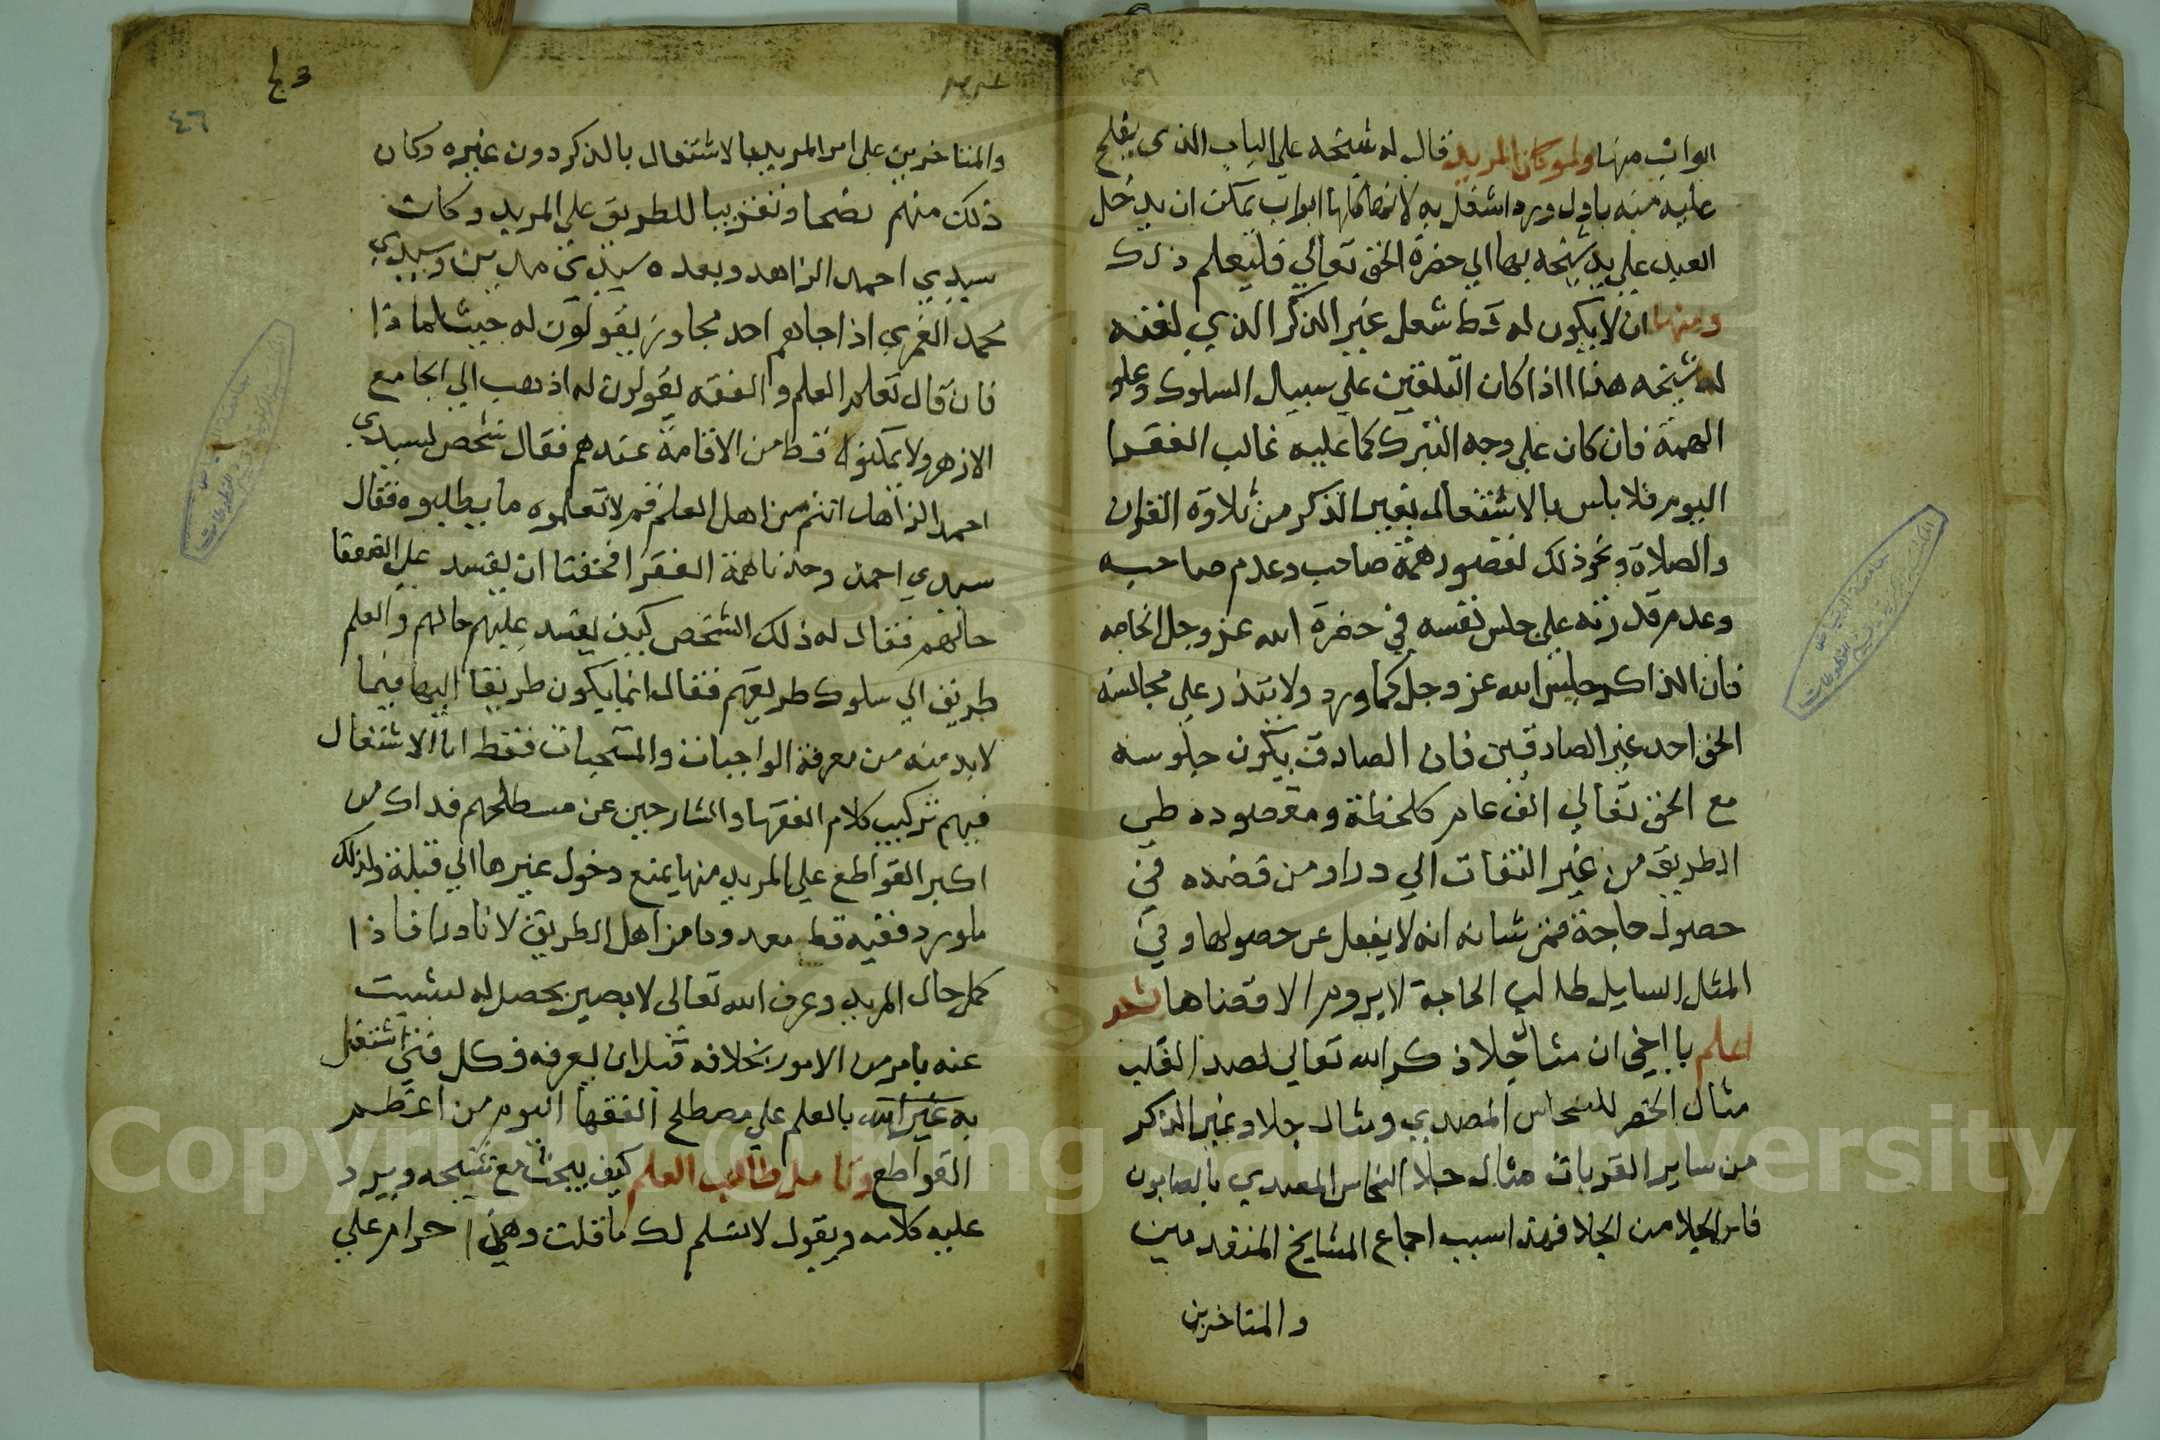 ابواب منها ولو كان المريد قال له شيخه على الباب الذي يفتح
عليه منه باول ورد اشغل به لانها كلها ابواب يمكن ان يدخل
العبد على يد شيخه بها الي حضرة الحق تعالي فليعلم ذلك
ومنها ان لا يكون له قط شغل غير الذكر الذي لقنه
له شيخه هذا اذا كان التلقين علي سبيل السلوك وعلو
الهمة فان كان علي وجه التبرك كما عليه غالب الفقرا
اليوم فلا باس بالاشتغال بغير الذكر من تلاوة القران
والصلاة ونحو ذلك لقصور همة صاحب وعدم صاحبه
وعدم قدرته علي حبس نفسه في حضرة الله عز وجل الخاصه
فان الذاكر جليس الله عز وجل كما ورد ولا يقدر علي مجالسة
الحق احد غير الصادقين فان الصادق يكون جلوسه
مع الحق تعالي الف عام كلحظة ومقصوده طي
الطريق من غير التفات الي وراو من قصده في
حصول حاجة فمن شانه انه لا يغفل عن حصولها وفي
المثل السايل طالب الحاجة لا يروم الا قضاها ثم
اعلم يا اخي ان مثال جلا ذكر الله تعالي لصدا القلب
مثال الحصر للنحاس المصدي ومثال جلاء غير الذكر
من ساير القربات مثال جلا النحاس المصدي بالصابون
فاين الجلا من الجلا فهذا سبب اجماع المشايخ المتقدمين
والمتاخرين
٤٦
والمتاخرين علي امر المريد بالاشتغال بالذكر دون غيره وكان
ذلك منهم نصحا وتقريبا للطريق علي المريد وكان
سيدي احمد الزاهد وبعده سيدي مدين وسيدي
محمد الغمري اذا جاهم احد مجاور يقولون له جيت لماذا
فان قال تعلم العلم والفقه يقولون له اذهب الي الجامع
الازهر ولا يمكنوا قط من الاقامة عندهم فقال شخص لسيدي
احمد الزاهد انتم من اهل العلم فلم لا تعلموه ما يطلبوه فقال
سيدي احمد وجدنا همة الفقرا فخفنا ان يفسد علي الفقرا
حالهم فقال له ذلك الشخص كيف يفسد عليهم حالهم والعلم
طريق الي سلوك طريقهم فقال انما يكون طريقا اليها فيما
لابد منه من معرفة الواجبات والمستحبات فقط اما الاشتغال
فيهم تركيب كلام الفقها والشارحين عن مسطلحهم فذاك من
اكبر القواطع علي المريد منها يمنع دخول غيرها الي قبلة ولذلك
ما ورد فقيه قط بعد وما من اهل الطريق لا نادرا فاذا
كمل حال المريد وعرف الله تعالي لا يصير يحصل له تشتيت
عنه بامر من الامور بخلافه قبل ان يعرفه فكل فتي اشتغل
به غير الله بالعلم علي مصطلح الفقها اليوم من اعظم
القواطع وتامل طالب العلم كيف يبحث مع شيخه ويرد
عليه كلامه ويقول لا نسلم لك ما قلت وهذا حرام علي